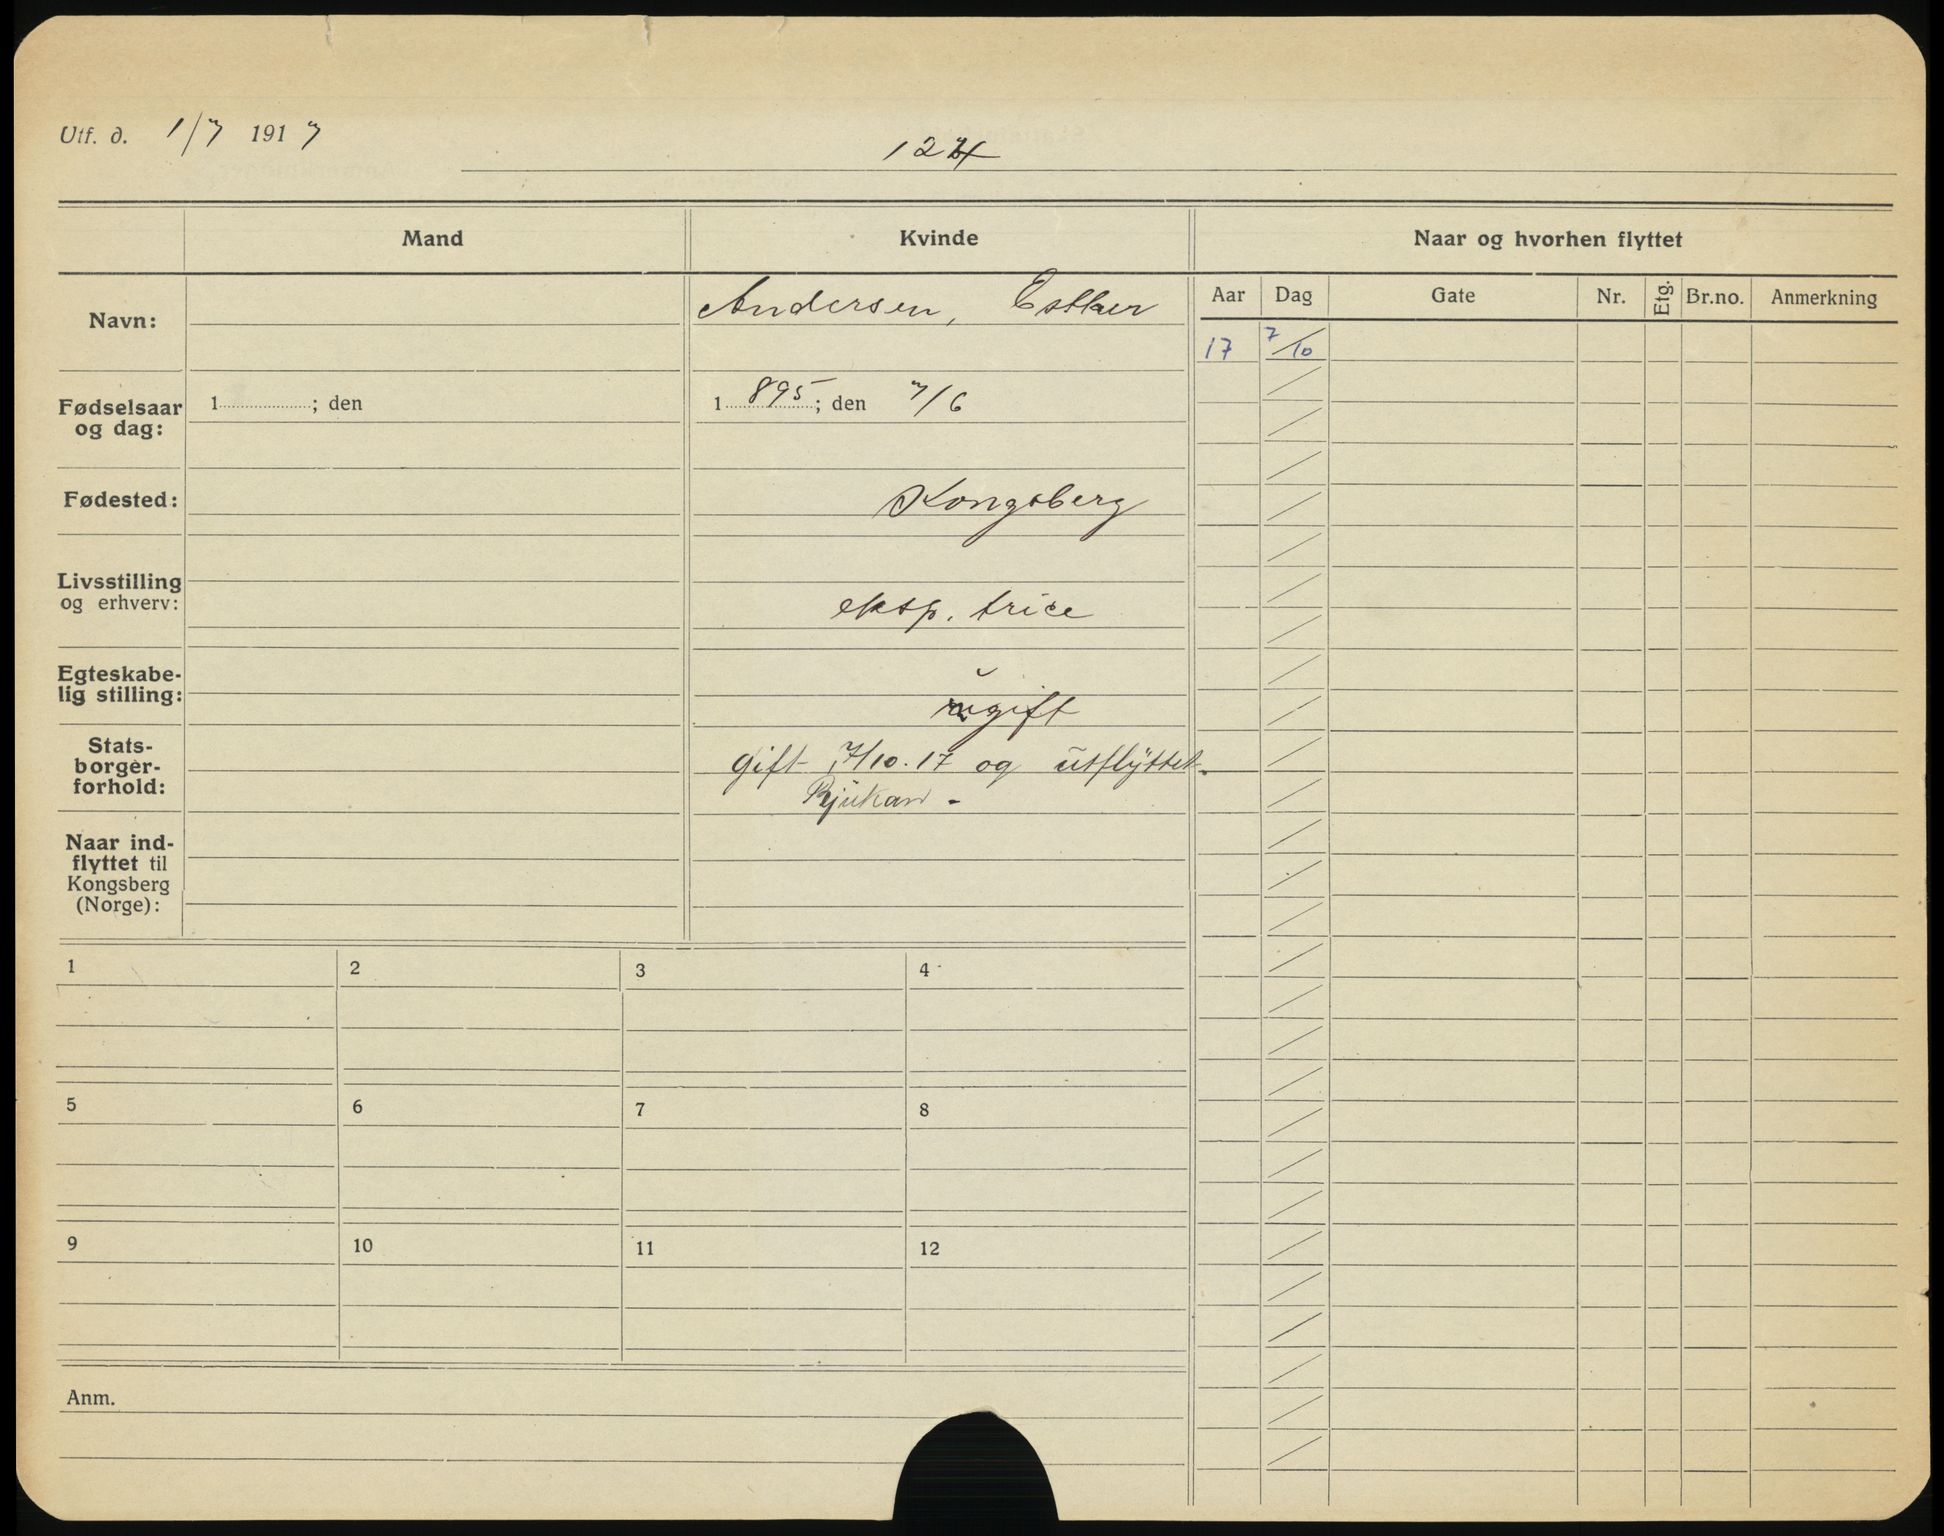 Utf. d. 1/7 1917
124
Mand Kvinde Naar og hvorhen flyttet
Aar Dag Gate Nr. Etg. Br.no. Anmerkning
Navn: Andersen, Esther
17 7/10
Fødselsaar og dag: 1 ; den 1895 ; den 7/6
Fødested: Kongsberg
Livsstilling og erhverv: eksp. trice
Egteskabe-
lig stilling: ugift
Stats-
borger-
forhold: gift 7/10. 17 og utflyttet
Rjukan -
Naar ind-
flyttet til
Kongsberg
(Norge):
1 2 3 4
5 6 7 8
9 10 11 12
Anm.